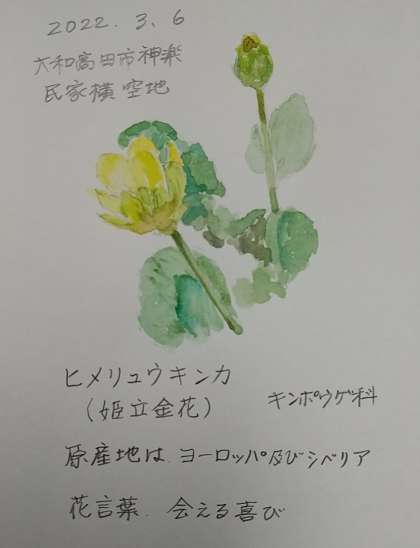 2022. 3. 6
大和高田市神楽
民家横空地
ヒメリュウキンカ
(姫立金花)
キンポウゲ科
原産地は、ヨーロッパ及びシベリア
花言葉、会える喜び